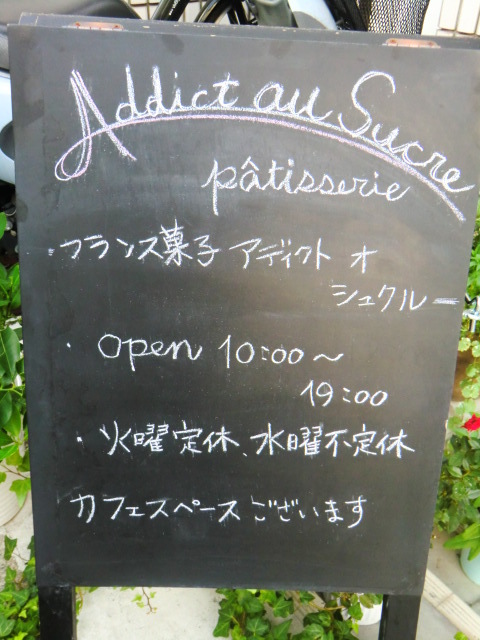 Addict au Sucre
pâtisserie
・フランス菓子 アディクト オ
シュクルー
・ Open 10:00〜
19:00
・火曜定休、水曜不定休
カフェスペースございます